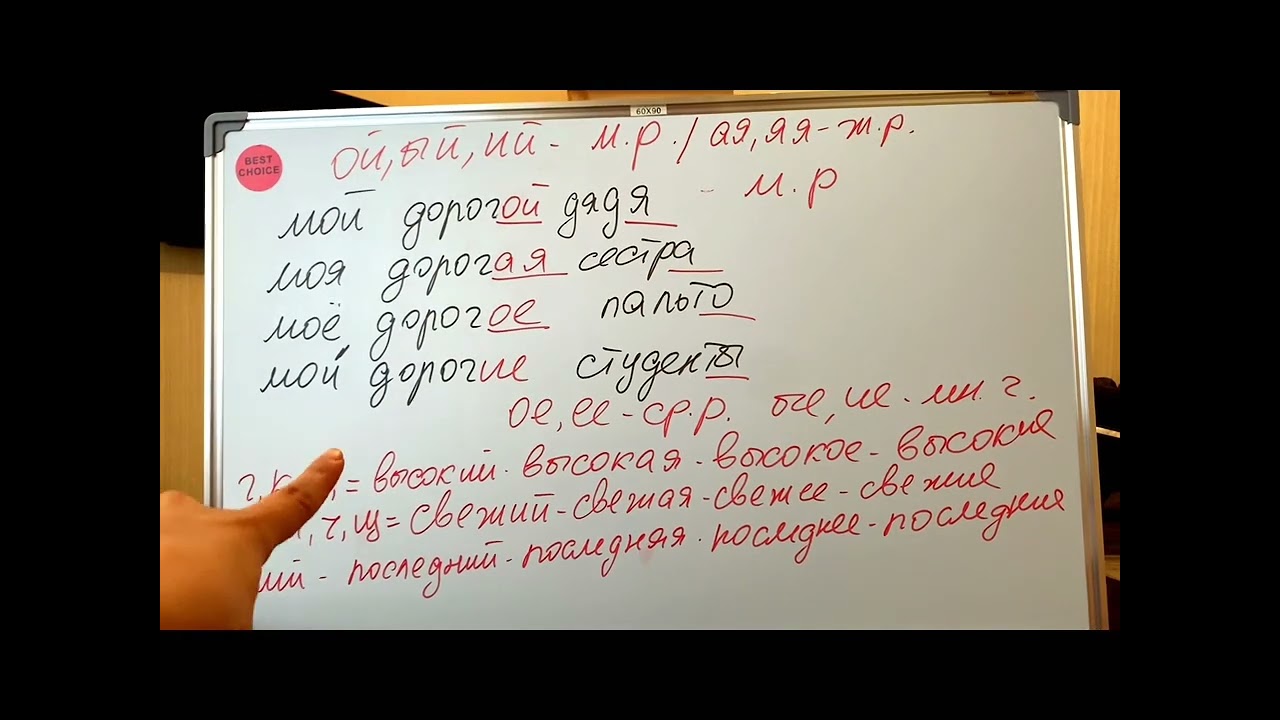 60X90
BEST
CHOICE
ой, ый, ий - м.р. / ая, яя - ж.р.
мой дорогой дядя - м.р
моя дорогая сестра
моё дорогое пальто
мой дорогие студенты
ое, ее - ср.р. ые, ие - мн. ч.
г, = высокий - высокая - высокое - высокие
, ч, щ = свежий - свежая - свежее - свежие
ний - последний - последняя - последнее - последние